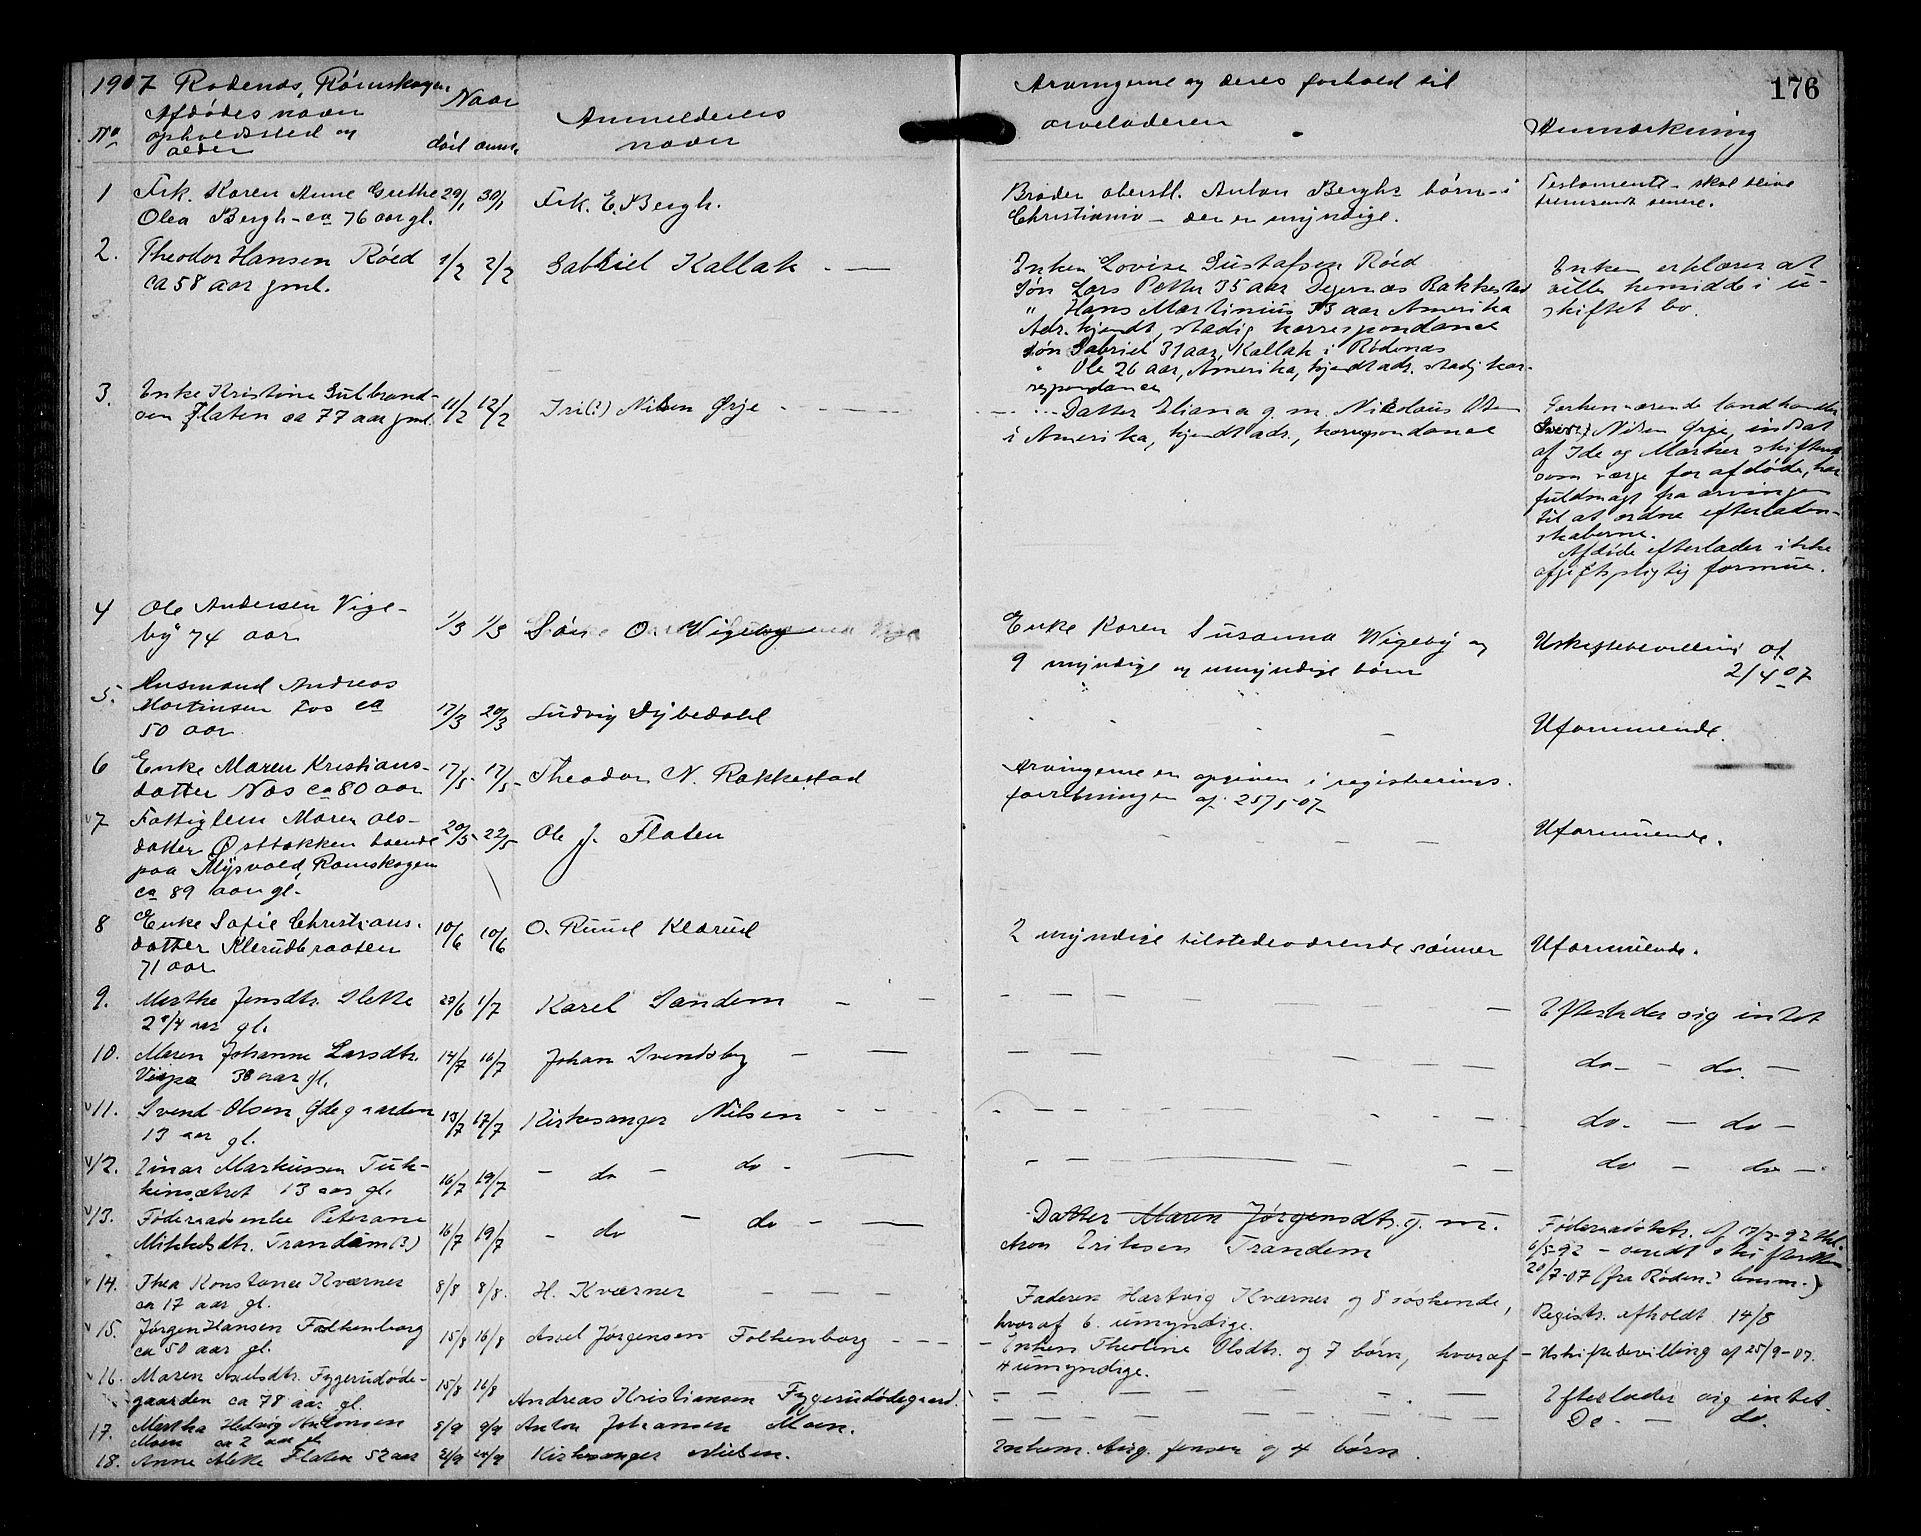 1907 Rødenæs, Rømskogen
176
No
Afdødes navn
opholdssted og
alder
Naar
død anm.
Anmelderens
navn
Arvingerne og deres forhold til
arveladeren
Anmærkning
1 Frk. Karen Anne Grethe 29/1 30/1 Frk. E. Bergh.
Olea Bergh - ca 76 aar gl.
Broder oberstl. Anton Berghs børn i
Christiania - der er myndige.
Testamente - skal blive
fremsendt senere.
2. Theodor Hansen Røed 1/2 2/2 Gabriel Kallak - —
ca 58 aar gml.
Enken Lovise Gustafsen Røed
Søn Lars Petter 35 aar Degernæs Rakkestad
" Hans Martinius 33 aar Amerika
Adr. kjendt, stadig korrespondance
Søn Gabriel 31 aar, Kallak i Rødenæs
" Ole 26 aar, Amerika, kjendt adr. stadig kor-
respondance
Enken erklærer at
ville hensidde i u-
skiftet bo.
3. Enke Kristine Gulbrand- 11/2 12/2 Nilsen Ørje - - - -
sen Flaten ca 77 aar gml.
Datter Eliana g. m. Nikolaus
i Amerika, kjendt adr., korrespondance
Forhenværende landhandler
Nilsen Ørje, indsat
af Ide og Marker skifteret
som værge for afdøde, har
fuldmagt fra arvingen
til at ordne efterladen-
skaberne.
Afdøde efterlader ikke
afgiftspligtig formue.
4 Ole Andersen Vige- 1/3 1/3 Søn O. Wigeby
by 74 aar
Enke Karen Susanna Wigeby og
9 myndige og umyndige børn
Uskiftebevilling af
2/4 07
5. Husmand Andreas
Martinsen Fos ca 17/3 20/3 Ludvig Dybedahl
50 aar.
Uformuende.
6 Enke Maren Kristians- 17/5 17/5 Theodor N. Rakkestad
datter Næs ca 80 aar
Arvingerne er opgiven i registrerings-
forretningen af 25/5-07
7 Fattiglem Maren Ols- 20/5 22/5 Ole J. Flaten
datter boende
paa Mysvold, Rømskogen
ca 89 aar gl.
Uformuende.
8 Enke Sofie Christians- 10/6 10/6 O. Ruud Klerud
datter Klerudbraaten
71 aar
2 myndige tilstedeværende sønner
Uformuende.
9. Marthe Jensdtr. Slette 29/6 1/7 Karel Sandem - - -
2 3/4 aar gl.
Efterlader sig intet
10. Maren Johanne Larsdtr. 14/7 16/7 Johan Svendsby - —
38 aar gl.
do - - do. -
11. Svend Olsen Ødegaarden 13/7 17/7 Kirkesanger Nilsen - - -
13 aar gl.
do. - do -
12. Einar Markussen Tuk-
kinsætret 13 aar gl. 16/7 19/7 - do - do - —
do - do -
13. Føderaadsenke Peterane
Mikkelsdtr. Trandem (?) 16/7 19/7 - do - do - —
Datter Maren Jørgensdtr. g. m.
Aron Eriksen Trandem
Føderaadskntr. af 17/2-92
6/5-92 - sendt skifteretten
20/7-07 (fra Røden. lensm.)
14. Thea Konstance Kværner 8/8 8/8. H. Kværner - - -
ca 17 aar gl.
Faderen Hartvig Kværner og 8 søskende,
hvoraf 6 umyndige.
Registr. afholdt 14/8
15. Jørgen Hansen Falkenborg 15/8 16/8 Axel Jørgensen Falkenborg - - -
ca 50 aar gl.
- Enken Theoline Olsdtr. og 7 børn, hvoraf -
4 umyndige.
Uskiftebevilling af 25/9-07.
16. Maren Axelsdtr. Fygerudøde- 15/8 16/8 Andreas Kristiansen Fygerudødegaard.
gaarden ca 78 aar gl.
Efterlader sig intet.
17. Martha Hedvig Antonsen 8/9 9/9 Anton Johansen Moen.
Moen ca 2 aar gl.
Do - do.
18. Anne Flaten 52 aar Kirkesanger Nielsen.
Enkem. Aug. Jensen og 4 børn.